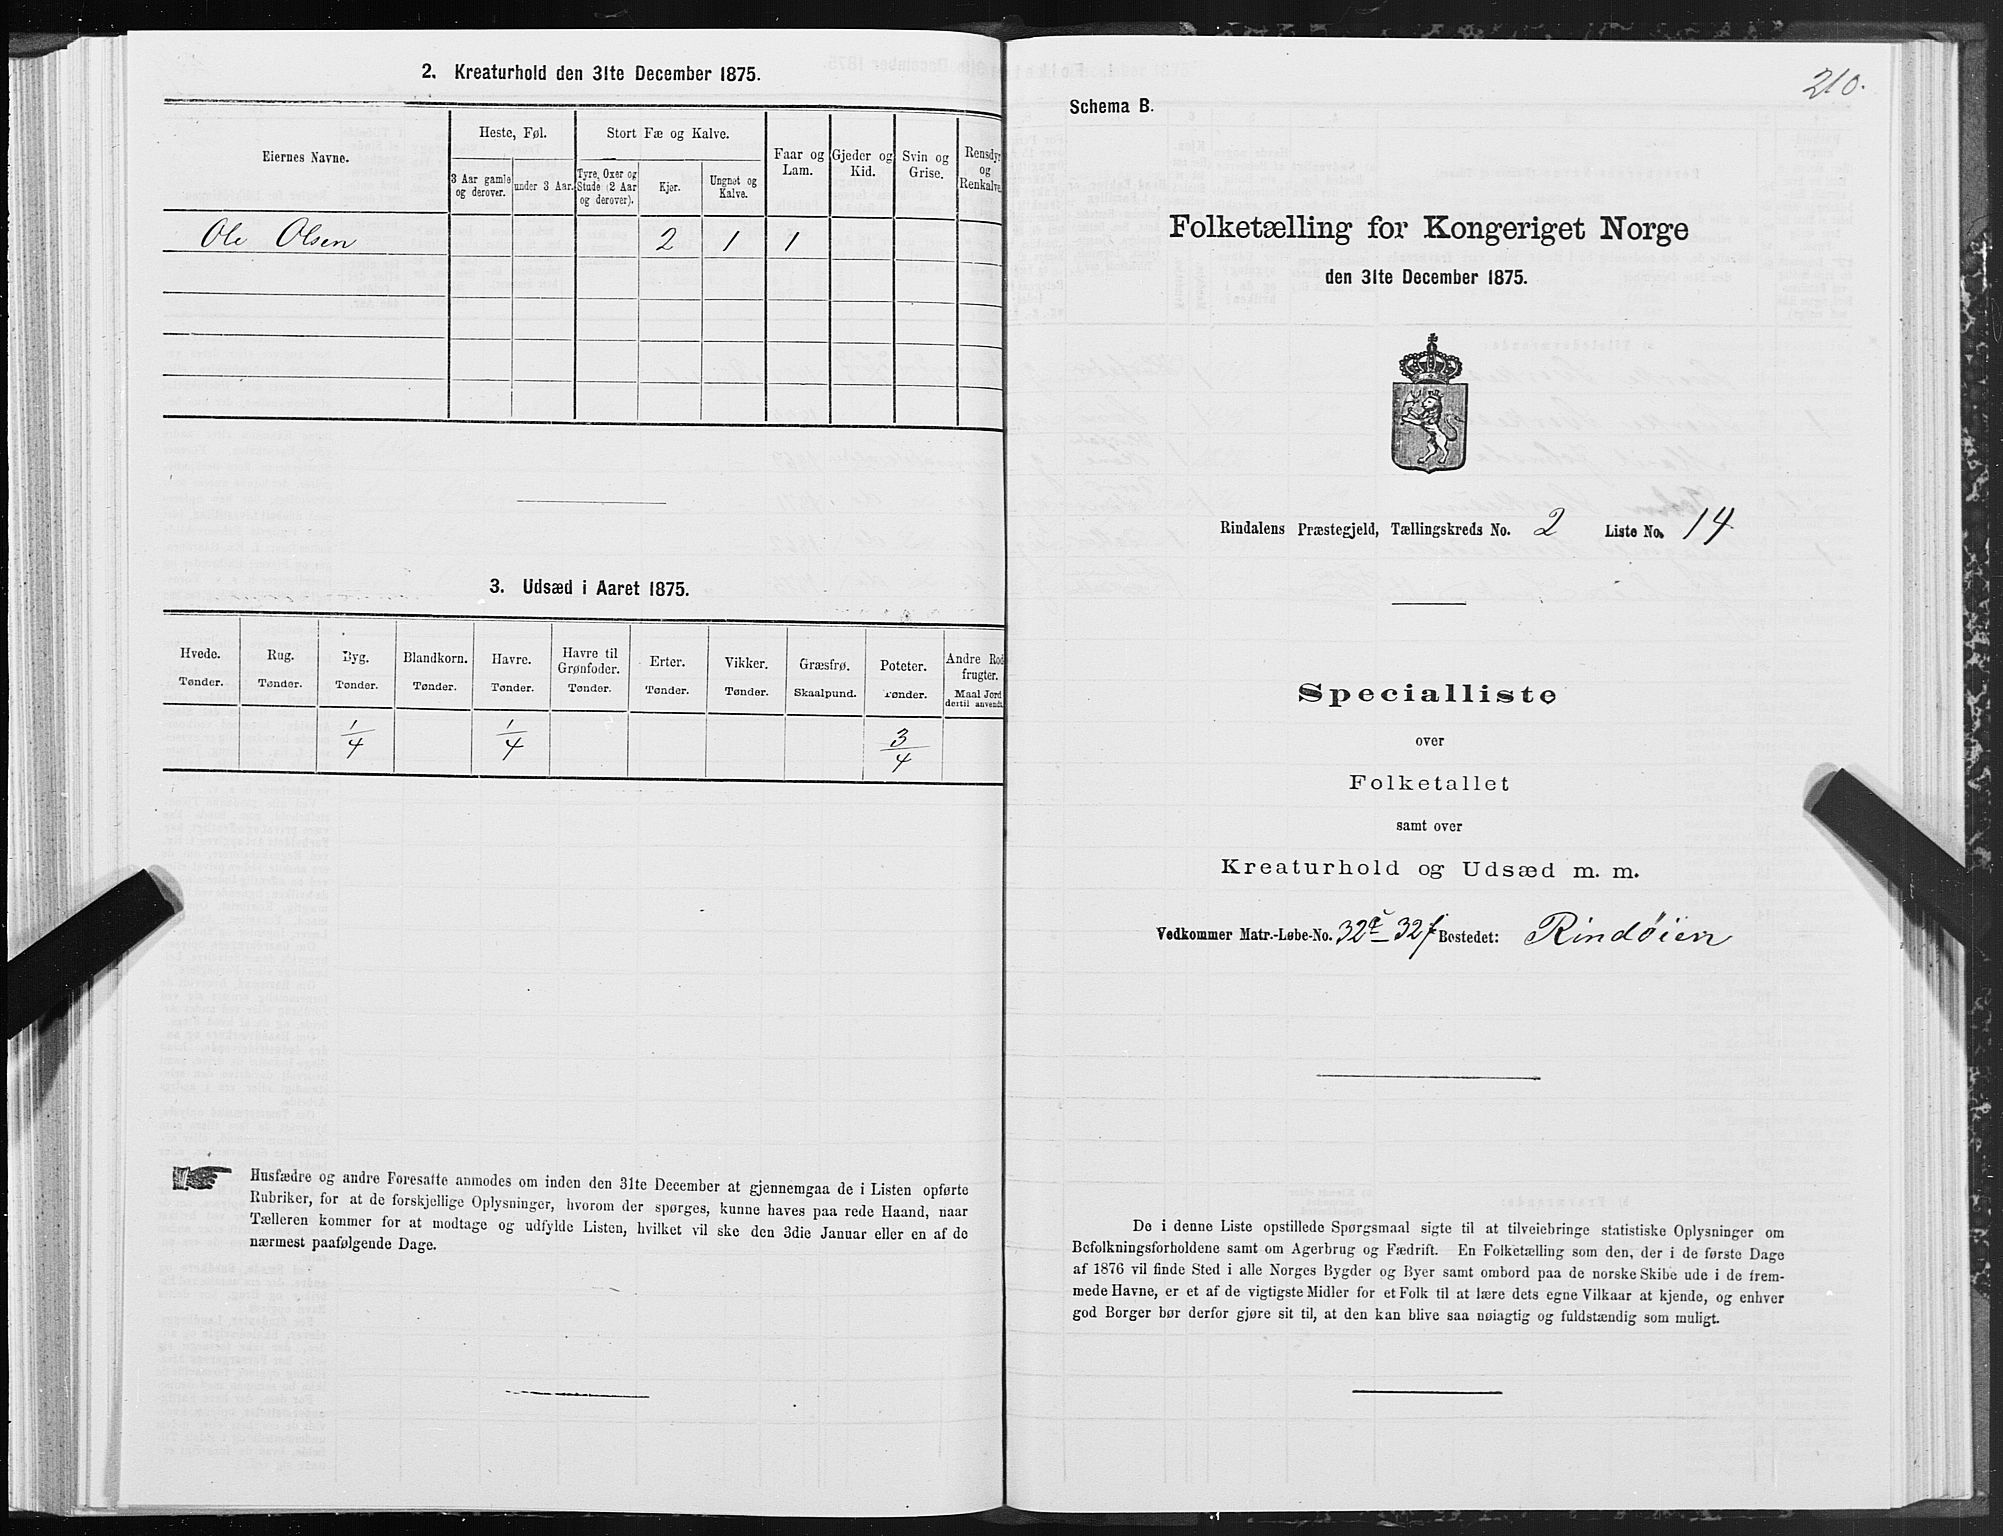 2. Kreaturhold den 31te December 1875.
Eiernes Navne.
Heste, Føl.
Stort Fæ og Kalve.
Faar og Lam.
Gjeder og Kid.
Svin og Grise.
Rensdyr og Renkalve.
3 Aar gamle og derover.
under 3 Aar.
Tyre, Oxer og Stude (2 Aar og derover).
Kjør.
Ungnøt og Kalve.
Ole Olsen 2 1 1
3. Udsæd i Aaret 1875.
Hvede. Rug. Byg. Blandkorn. Havre. Havre til Grønfoder. Erter. Vikker. Græsfrø. Poteter. Andre Rodfrugter.
Tønder. Tønder. Tønder. Tønder. Tønder. Tønder. Tønder. Tønder. Skaalpund. Tønder. Maal Jord dertil anvendt.
1/4 1/4 3/4
Husfædre og andre Foresatte anmodes om inden den 31te December at gjennemgaa de i Listen opførte
Rubriker, for at de forskjellige Oplysninger, hvorom der spørges, kunne haves paa rede Haand, naar
Tælleren kommer for at modtage og udfylde Listen, hvilket vil ske den 3die Januar eller en af de
nærmest paafølgende Dage.
210.
Schema B.
Folketælling for Kongeriget Norge
den 31te December 1875.
Rindalens Præstegjeld, Tællingskreds No. 2 Liste No. 14
Specialliste
over
Folketallet
samt over
Kreaturhold og Udsæd m. m.
Vedkommer Matr.-Løbe-No. 32e 32f Bostedet: Rindøien
De i denne Liste opstillede Spørgsmaal sigte til at tilveiebringe statistiske Oplysninger om
Befolkningsforholdene samt om Agerbrug og Fædrift. En Folketælling som den, der i de første Dage
af 1876 vil finde Sted i alle Norges Bygder og Byer samt ombord paa de norske Skibe ude i de frem-
mede Havne, er et af de vigtigste Midler for et Folk til at lære dets egne Vilkaar at kjende, og enhver
god Borger bør derfor gjøre sit til, at den kan blive saa nøiagtig og fuldstændig som muligt.